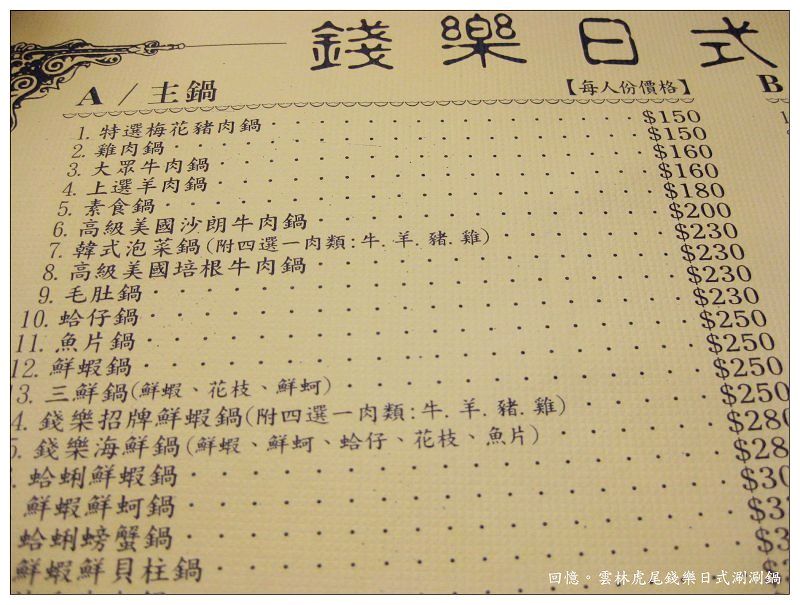 錢樂日式
A / 主鍋 【每人份價格】 B
1. 特選梅花豬肉鍋 $150
2. 雞肉鍋 $150
3. 大眾牛肉鍋 $160
4. 上選羊肉鍋 $160
5. 素食鍋 $180
6. 高級美國沙朗牛肉鍋 $200
7. 韓式泡菜鍋(附四選一肉類:牛.羊.豬.雞) $230
8. 高級美國培根牛肉鍋 $230
9. 毛肚鍋 $230
10. 蛤仔鍋 $230
11. 魚片鍋 $250
12. 鮮蝦鍋 $250
13. 三鮮鍋(鮮蝦、花枝、鮮蚵) $250
4. 錢樂招牌鮮蝦鍋(附四選一肉類:牛.羊.豬.雞) $250
5. 錢樂海鮮鍋(鮮蝦、鮮蚵、蛤仔、花枝、魚片) $280
蛤蜊鮮蝦鍋 $28
鮮蝦鮮蚵鍋 $30
蛤蜊螃蟹鍋
鮮蝦鮮貝柱鍋
回憶。雲林虎尾錢樂日式涮涮鍋